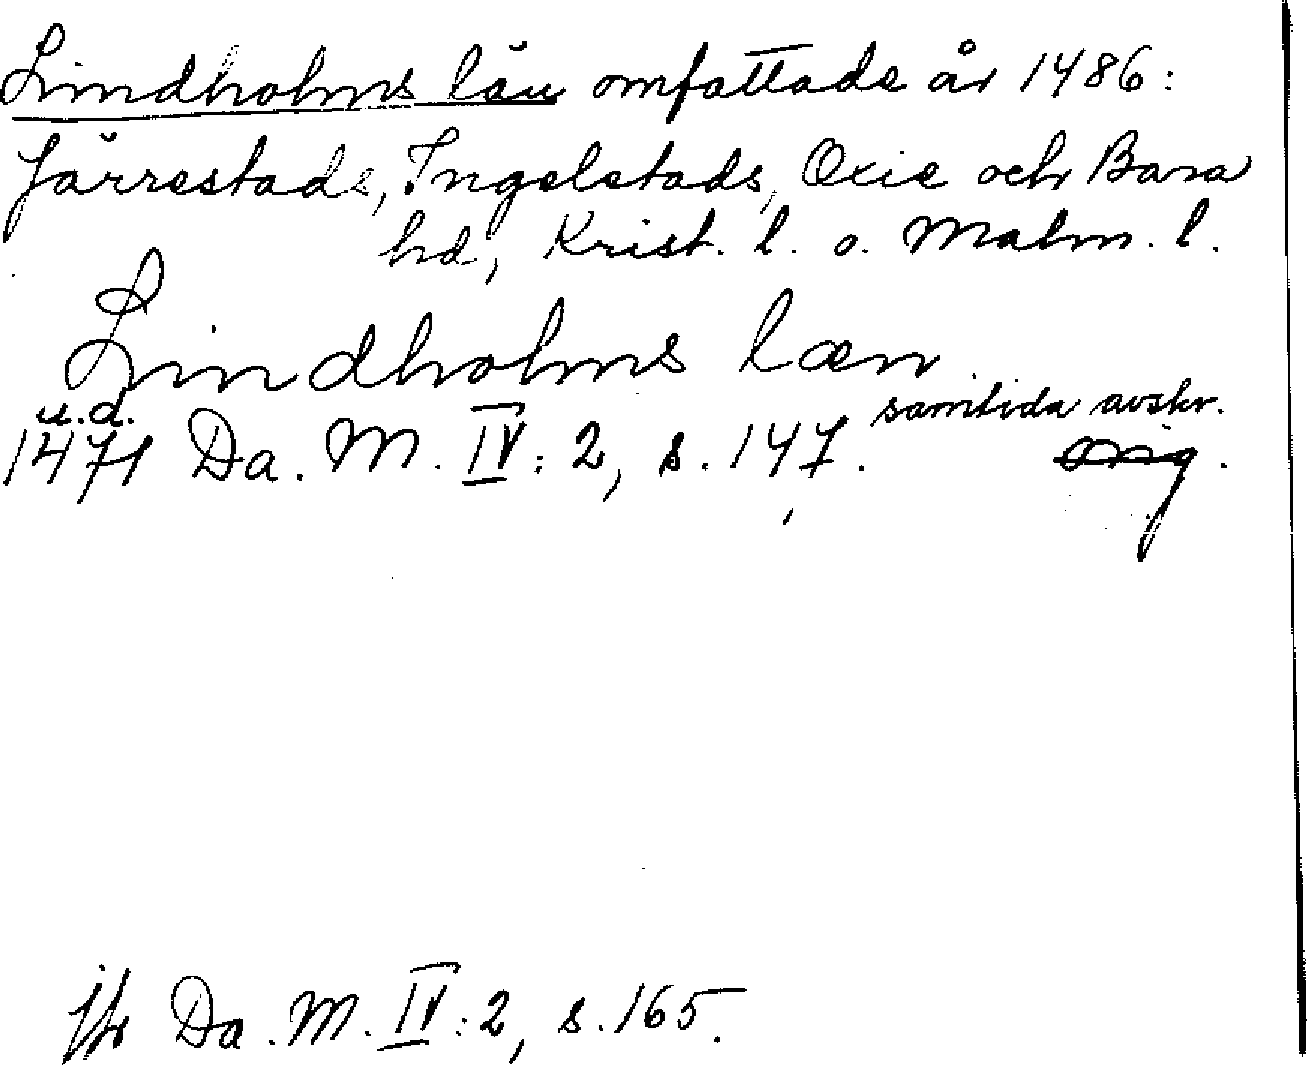 Lindholms län omfattade år 1486:
Järrestads, Ingelstads, Oxie och Bara
hd, Krist. l. o. Malm. l.
Lindholms læn
u.d.
samtida avskr.
1471 Da. M. IV: 2, s. 147. orig.
jfr Da. M. IV: 2, s. 165.